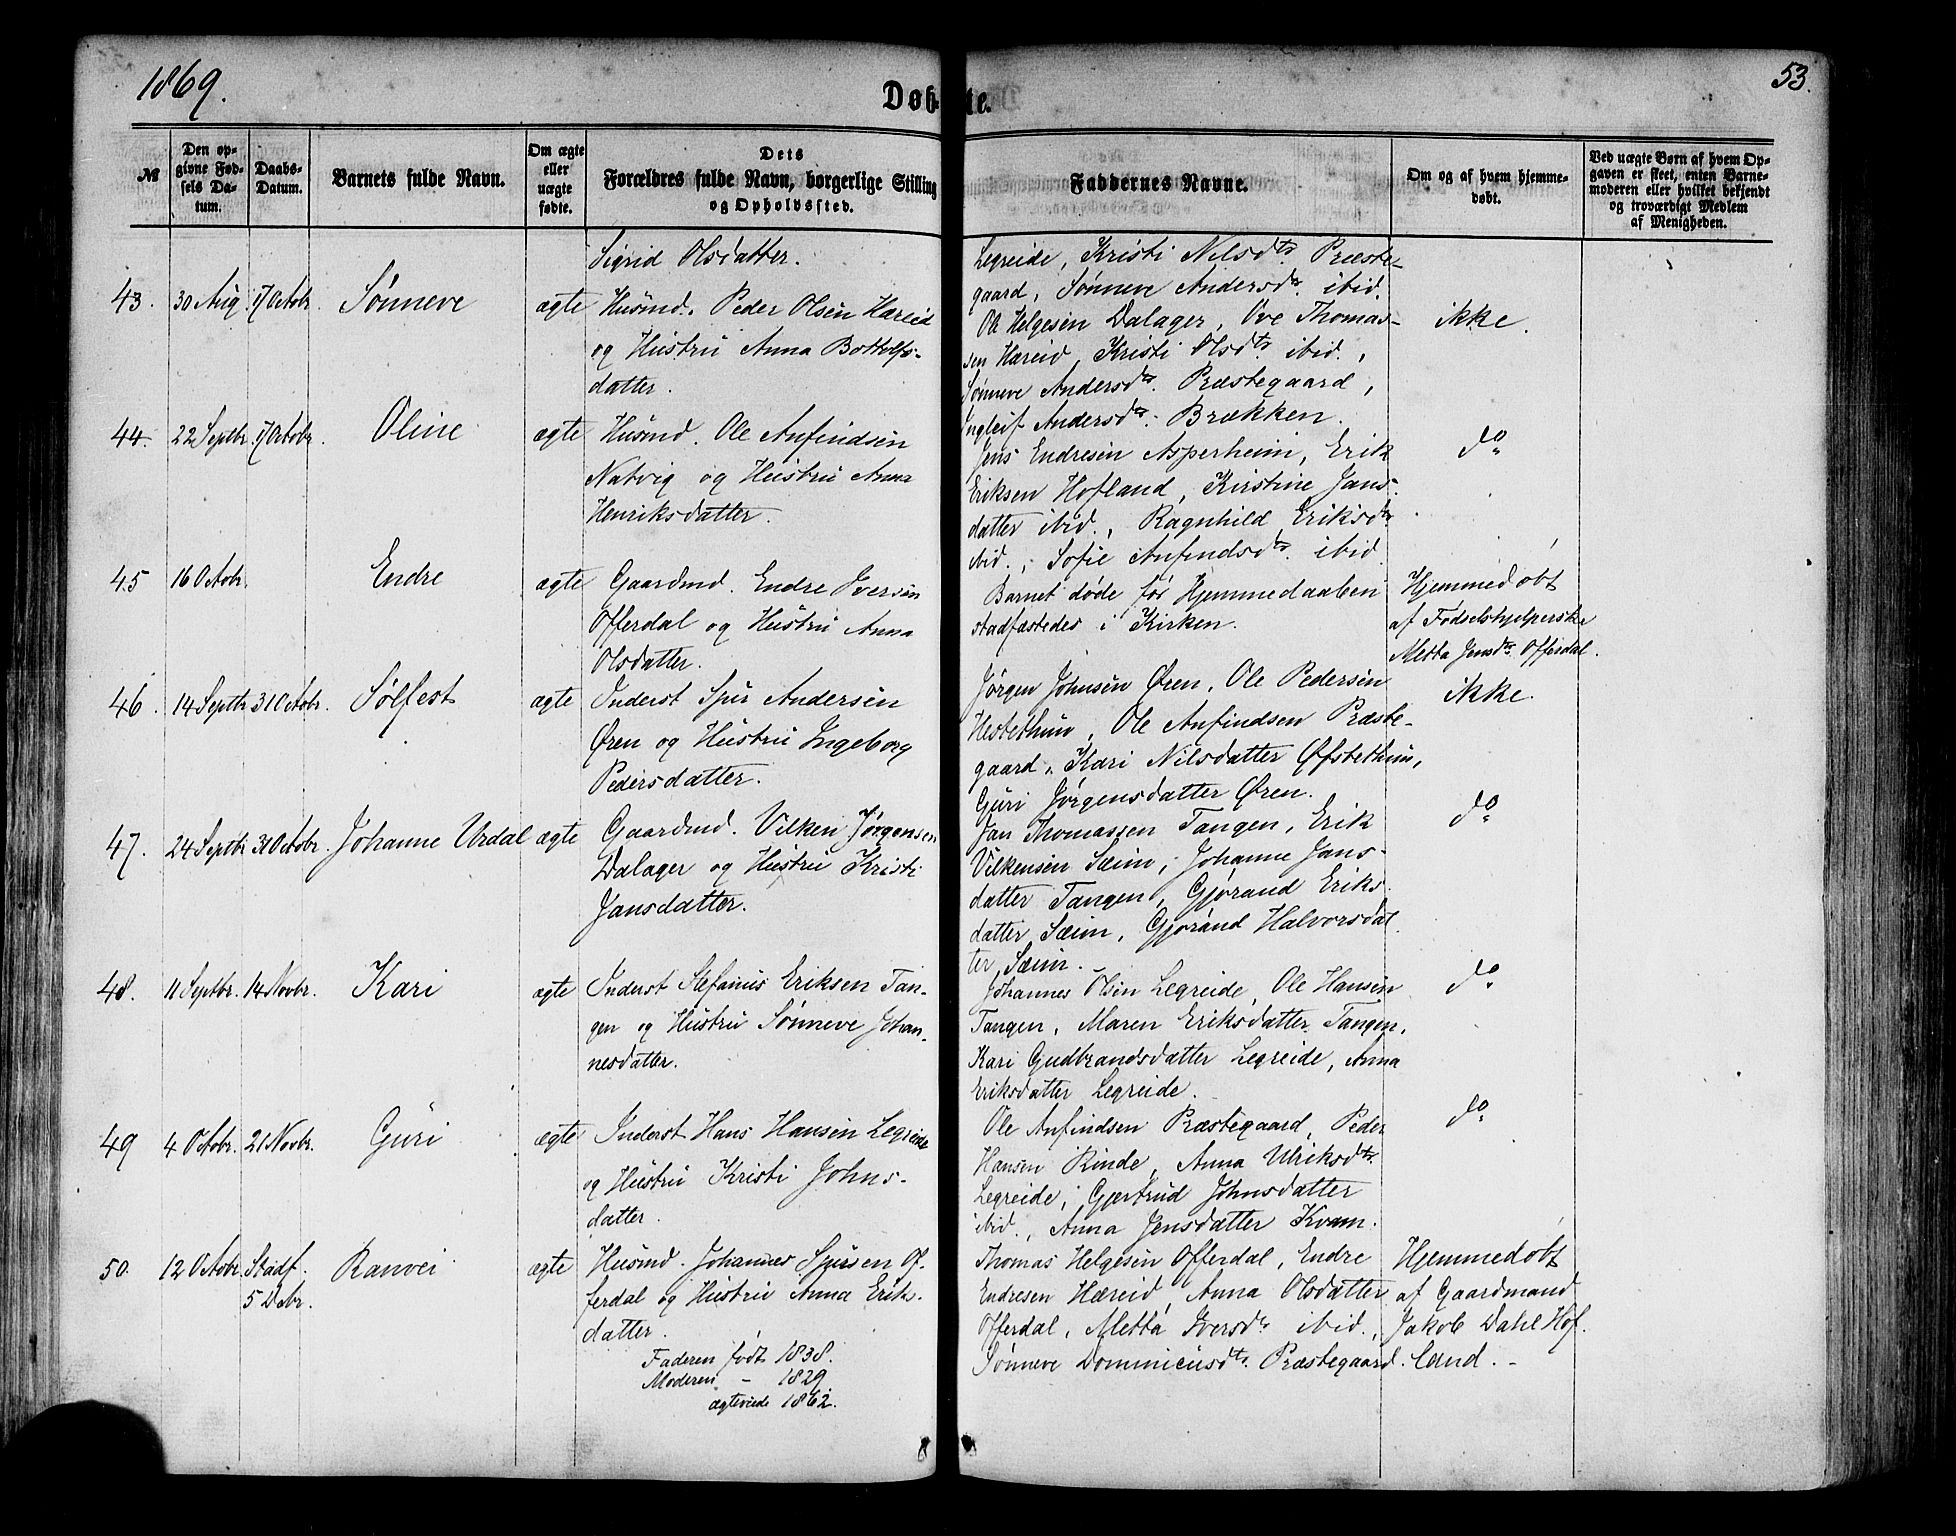 1869.
Døbte.
53.
№
Den opgivne Fødsels Datum.
Daabs-Datum.
Barnets fulde Navn.
Om ægte eller uægte fødte.
Dets Forældres fulde Navn, borgerlige Stilling og Opholdssted.
Faddernes Navne.
Om og af hvem hjemmedøbt.
Ved uægte Børn af hvem Opgaven er skeet, enten Barnemoderen eller hvilket bekjendt og troværdigt Medlem af Menigheden.
Sigrid Olsdatter.
Legreide, Kristi Nilsdtr Præste-
gaard, Sønneve Andersdtr. ibid.
43. 30 Aug 17 Octobr Sønneve ægte Husmd. Peder Olsen Hæreid
og Hustru Anna Bottolfs-
datter.
Ole Helgesen Dalager, Ove Thomas-
sen Hæreid, Kristi Olsdtr ibid.,
Sønneve Andersdtr. Præstegaard,
Ingleif Andersdtr. Brækken.
ikke.
44. 22 Septbr. 17 Octobr. Oline ægte Husmd. Ole Anfindsen
Natvig og Hustru Anna
Henriksdatter.
Jens Endresen Asperheim, Erik
Eriksen Hofland, Kirstine Jans-
datter ibid., Ragnhild Eriksdtr
ibid., Sofie Anfindsdtr. ibid.
do
45 16 Octobr. Endre ægte Gaardmd. Endre Iversen
Offerdal og Hustru Anna
Olsdatter.
Barnet døde før Hjemmedaaben
stadfæstedes i Kirken.
Hjemmedøbt
af Fødselshjelperske
Metta Jensdtr Offerdal.
46. 14 Septbr 31 Octobr. Sølfest ægte Inderst Sjur Andersen
Øren og Hustru Ingeborg
Pedersdatter.
Jørgen Johnsen Øren, Ole Pedersen
Hestethun, Ole Anfindsen Præste-
gaard, Kari Nilsdatter Øfstethun,
Guri Jørgensdatter Øren.
ikke.
47. 24 Septbr 31 Octobr. Johanne Urdal ægte Gaardmd. Vilken Jørgensen
Dalager og Hustru Kristi
Jansdatter.
Jan Thomassen Tangen, Erik
Vilkensen Sæim, Johanne Jans-
datter Tangen, Gjørand Eriks-
datter Sæim, Gjørand Halvorsdat
ter Sæim.
do
48. 11 Septbr. 14 Novbr. Kari ægte Inderst Stefanus Eriksen Tan-
gen og Hustru Sønneve Johan-
nesdatter.
Johannes Olsen Legreide, Ole Hansen
Tangen, Maren Eriksdatter Tangen,
Kari Gudbrandsdatter Legreide, Anna
Eriksdatter Legreide.
do
49 4 Octobr. 21 Novbr. Guri ægte Inderst Hans Hansen Legreide
og Hustru Kristi Johns-
datter.
Ole Anfindsen Præstegaard, Peder
Hansen Rinde, Anna Ulriksdtr.
Legreide, Gjertrud Johnsdatter
ibid., Anna Jensdatter Kvam.
do
50. 12 Octobr. Stadf.
5 Debr. Ranvei ægte Husmd. Johannes Sjursen Of-
ferdal og Hustru Anna Erik-
datter.
Faderen født 1838.
Moderen - 1829
ægteviede 1862.
Thomas Helgesen Offerdal, Endre
Endresen Hæreid, Anna Olsdatter
Offerdal, Metta Iversdtr ibid.,
Sønneve Dominicusdtr. Præstegaard.
Hjemmedøbt
af Gaardmand
Jakob Dahl Hof-
land. -